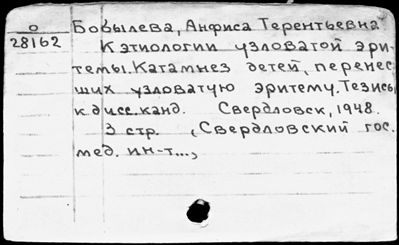 О Бобылева, Анфиса Терентьевна
28162
К этиологии узловатой эри-
темы. Катамнез детей, перенес-
ших узловатую эритему. Тезисы
к дисс. канд. Свердловск, 1948.
3 стр. (Свердловский гос.
мед. ин-т...,